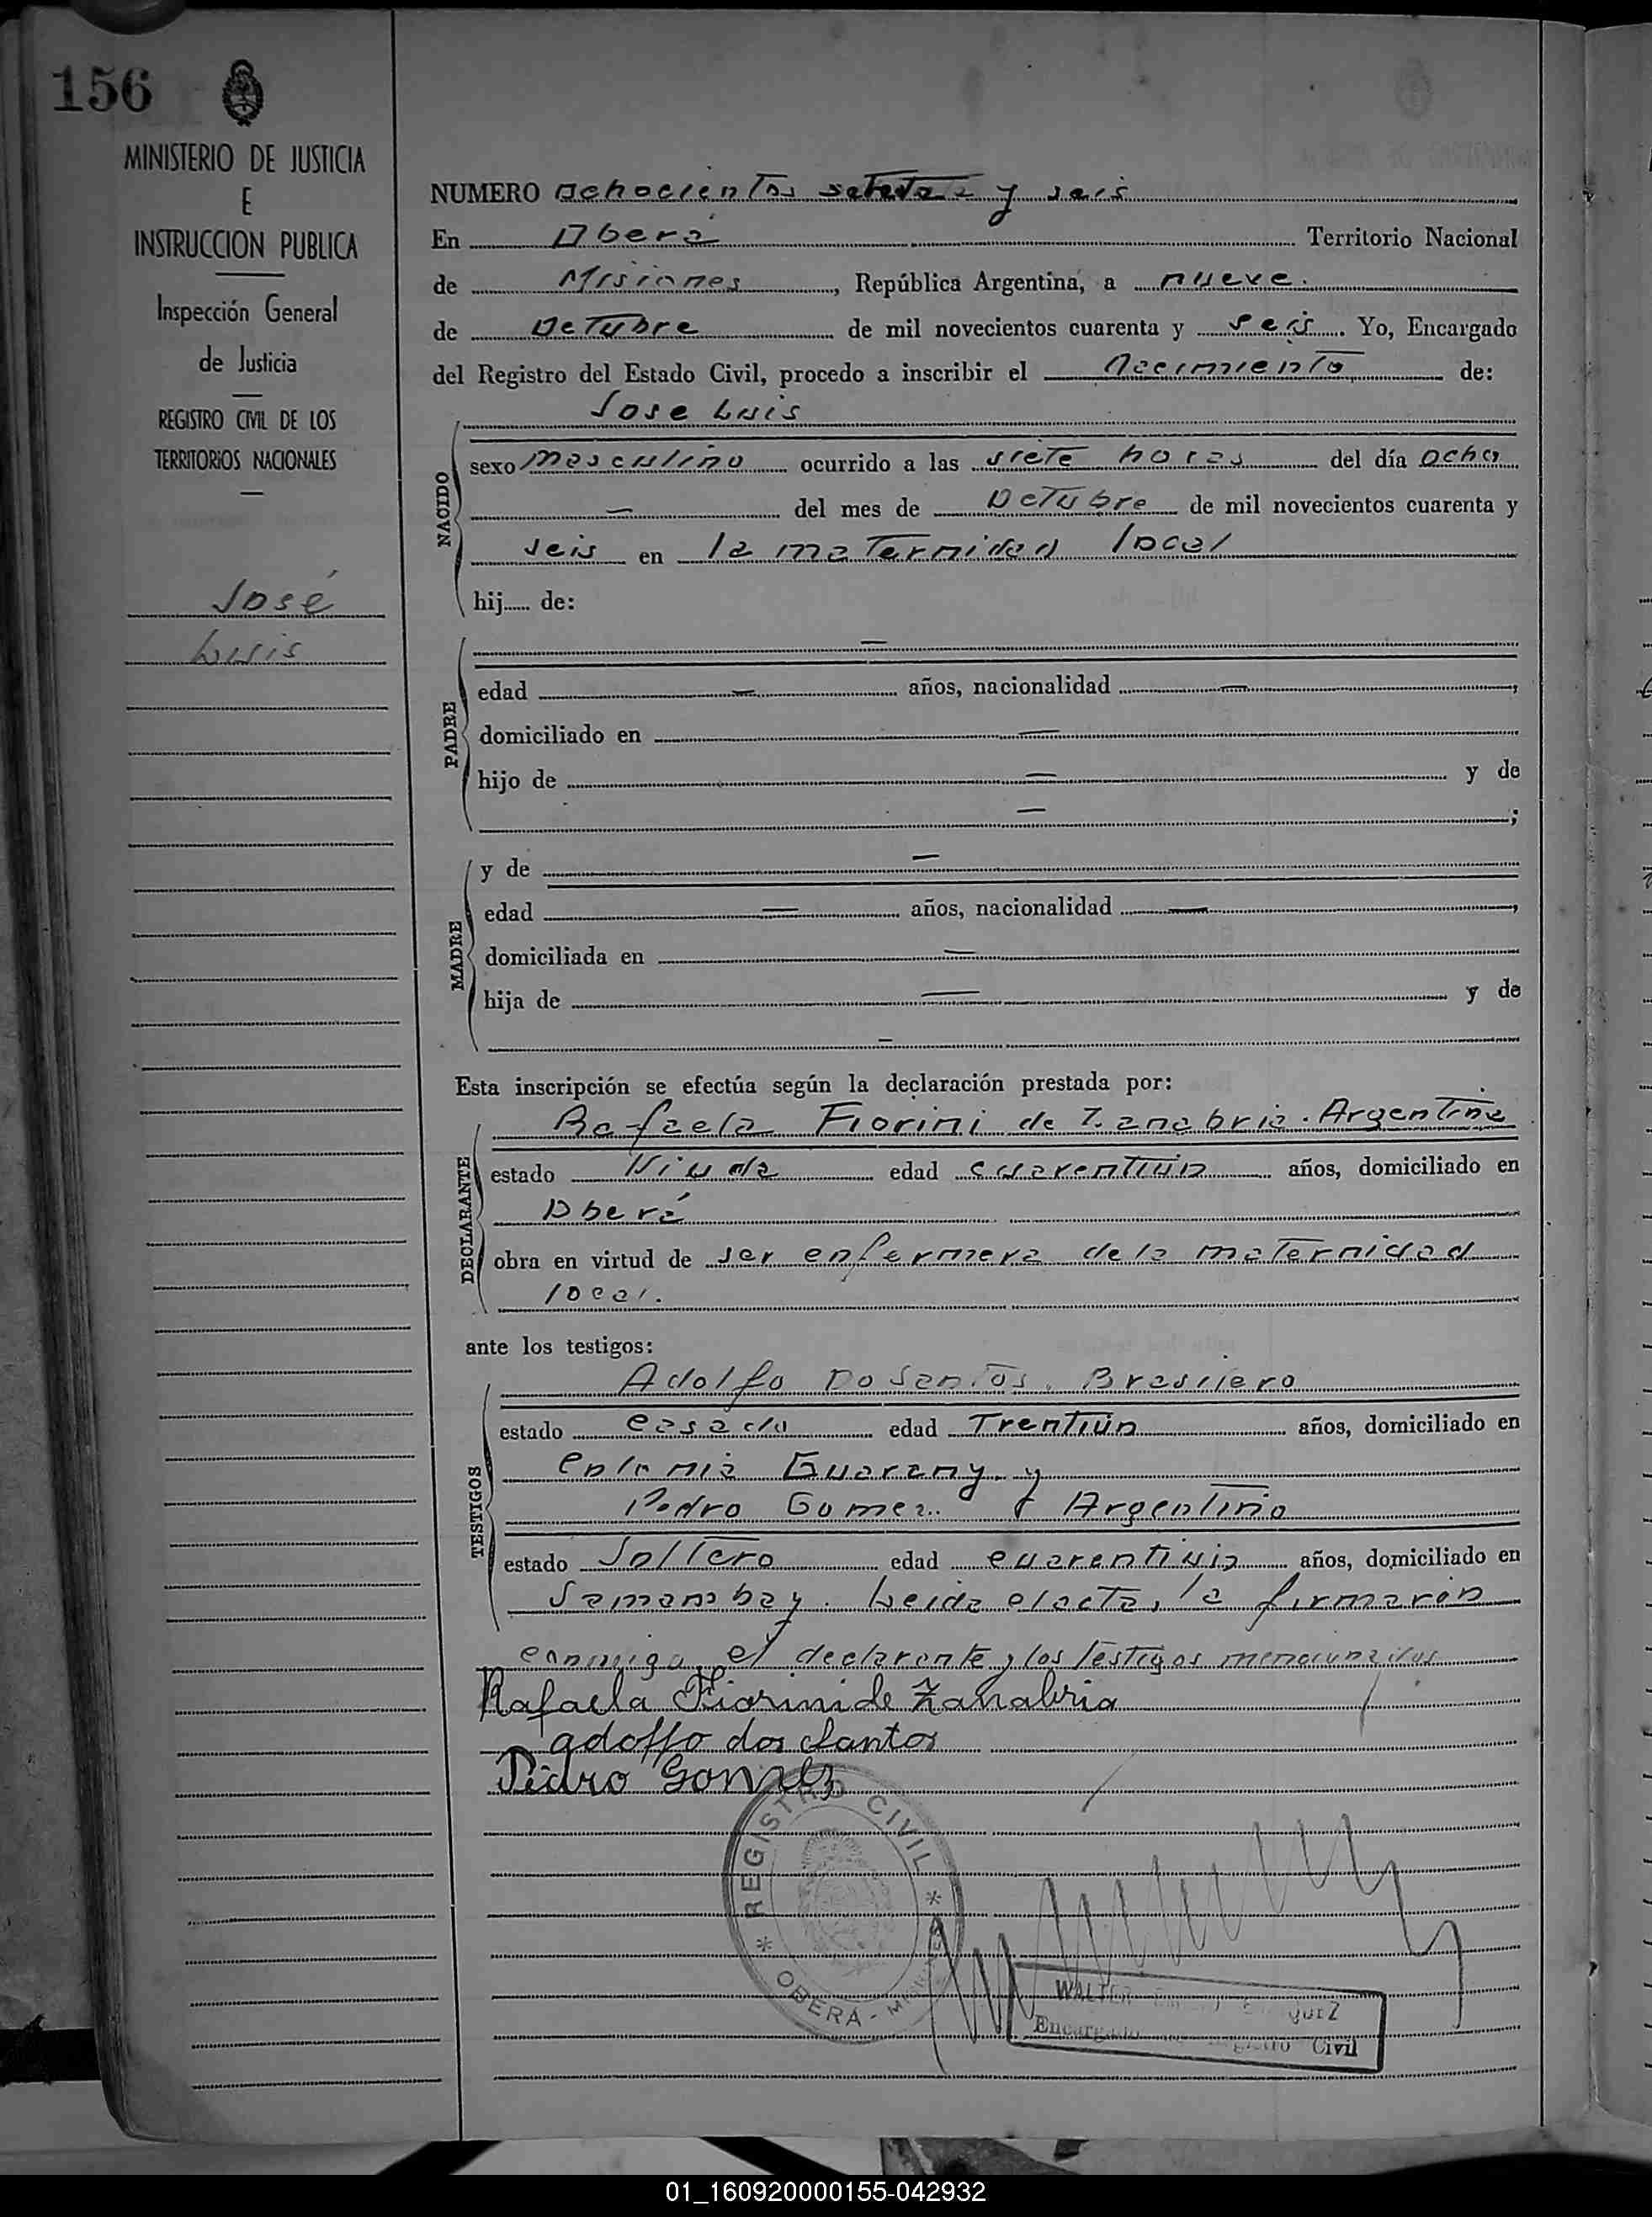 156
MINISTERIO DE JUSTICIA
E
INSTRUCCION PUBLICA
Inspección General
de Justicia
REGISTRO CIVIL DE LOS
TERRITORIOS NACIONALES
José
Luis
NUMERO Ochocientos setenta y seis
En Oberá Territorio Nacional
de Misiones, República Argentina, a nueve.
de Octubre de mil novecientos cuarenta y seis. Yo, Encargado
del Registro del Estado Civil, procedo a inscribir el nacimiento de:
NACIDO
Jose Luis
sexo masculino ocurrido a las siete horas del día ocho
— del mes de Octubre de mil novecientos cuarenta y
seis en la maternidad local
hij de:
PADRE
—
edad — años, nacionalidad —,
domiciliado en —
hijo de — y de
— ;
MADRE
y de —
edad — años, nacionalidad —,
domiciliada en —
hija de — y de
—
Esta inscripción se efectúa según la declaración prestada por:
DECLARANTE
Rafaela Fiorini de Zanabria. Argentina
estado Viuda edad cuarentiún años, domiciliado en
Oberá
obra en virtud de ser enfermera de la maternidad
local.
ante los testigos:
TESTIGOS
Adolfo Do Santos. Brasilero
estado casado edad Trentiún años, domiciliado en
Colonia Guarany. y
Pedro Gomez. Argentino
estado Soltero edad cuarentiuin años, domiciliado en
Samambay. Leida el acta, la firmarón
conmigo el declarante y los testigos mencionados
Rafaela Fiorini de Zanabria
adolfo dos Santos
Pedro Gomez
REGISTRO CIVIL
OBERÁ - MISIONES
WALTER
Encargado Registro Civil
01_160920000155-042932